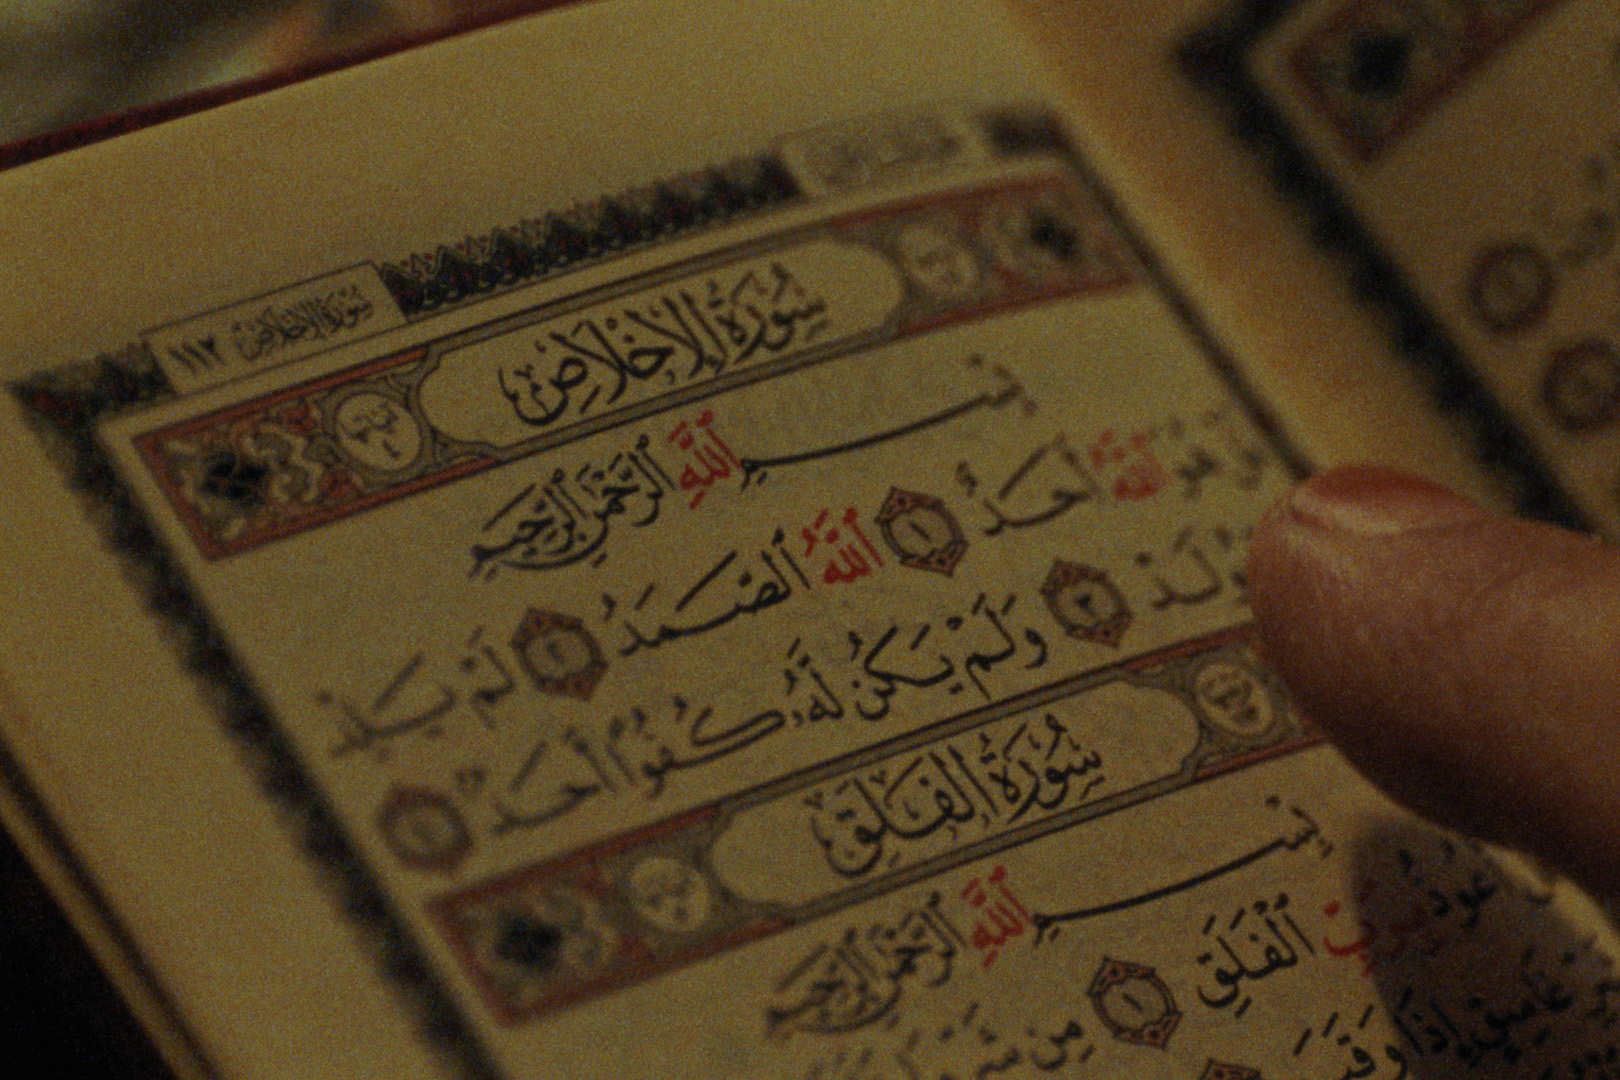 سُورَةُ الإِخْلَاصِ ١١٢
سُورَةُ الإِخْلَاصِ
آياتها ٤
بِسْمِ ٱللَّهِ ٱلرَّحْمَٰنِ ٱلرَّحِيمِ
قُلْ هُوَ ٱللَّهُ أَحَدٌ ١ ٱللَّهُ ٱلصَّمَدُ ٢ لَمْ يَلِدْ
وَلَمْ يُولَدْ ٣ وَلَمْ يَكُن لَّهُۥ كُفُوًا أَحَدٌۢ ٤
سُورَةُ الفَلَقِ
بِسْمِ ٱللَّهِ ٱلرَّحْمَٰنِ ٱلرَّحِيمِ
أَعُوذُ بِرَبِّ ٱلْفَلَقِ ١ مِن شَرِّ
غَاسِقٍ إِذَا وَقَبَ